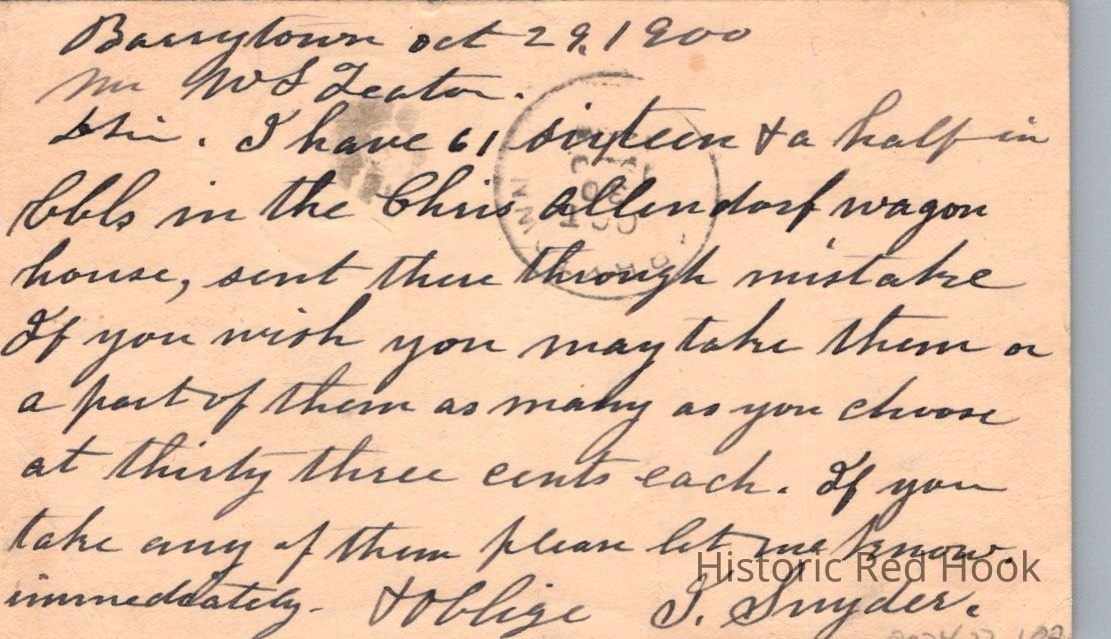 Barrytown Oct 29, 1900
Mr W S Teator.
Sir. I have 61 sixteen & a half in
bbls in the Chris Allendorf wagon
house, sent there through mistake
If you wish you may take them or
a part of them as many as you choose
at thirty three cents each. If you
take any of them please let me know.
immediately. & Oblige S. Snyder.
Historic Red Hook